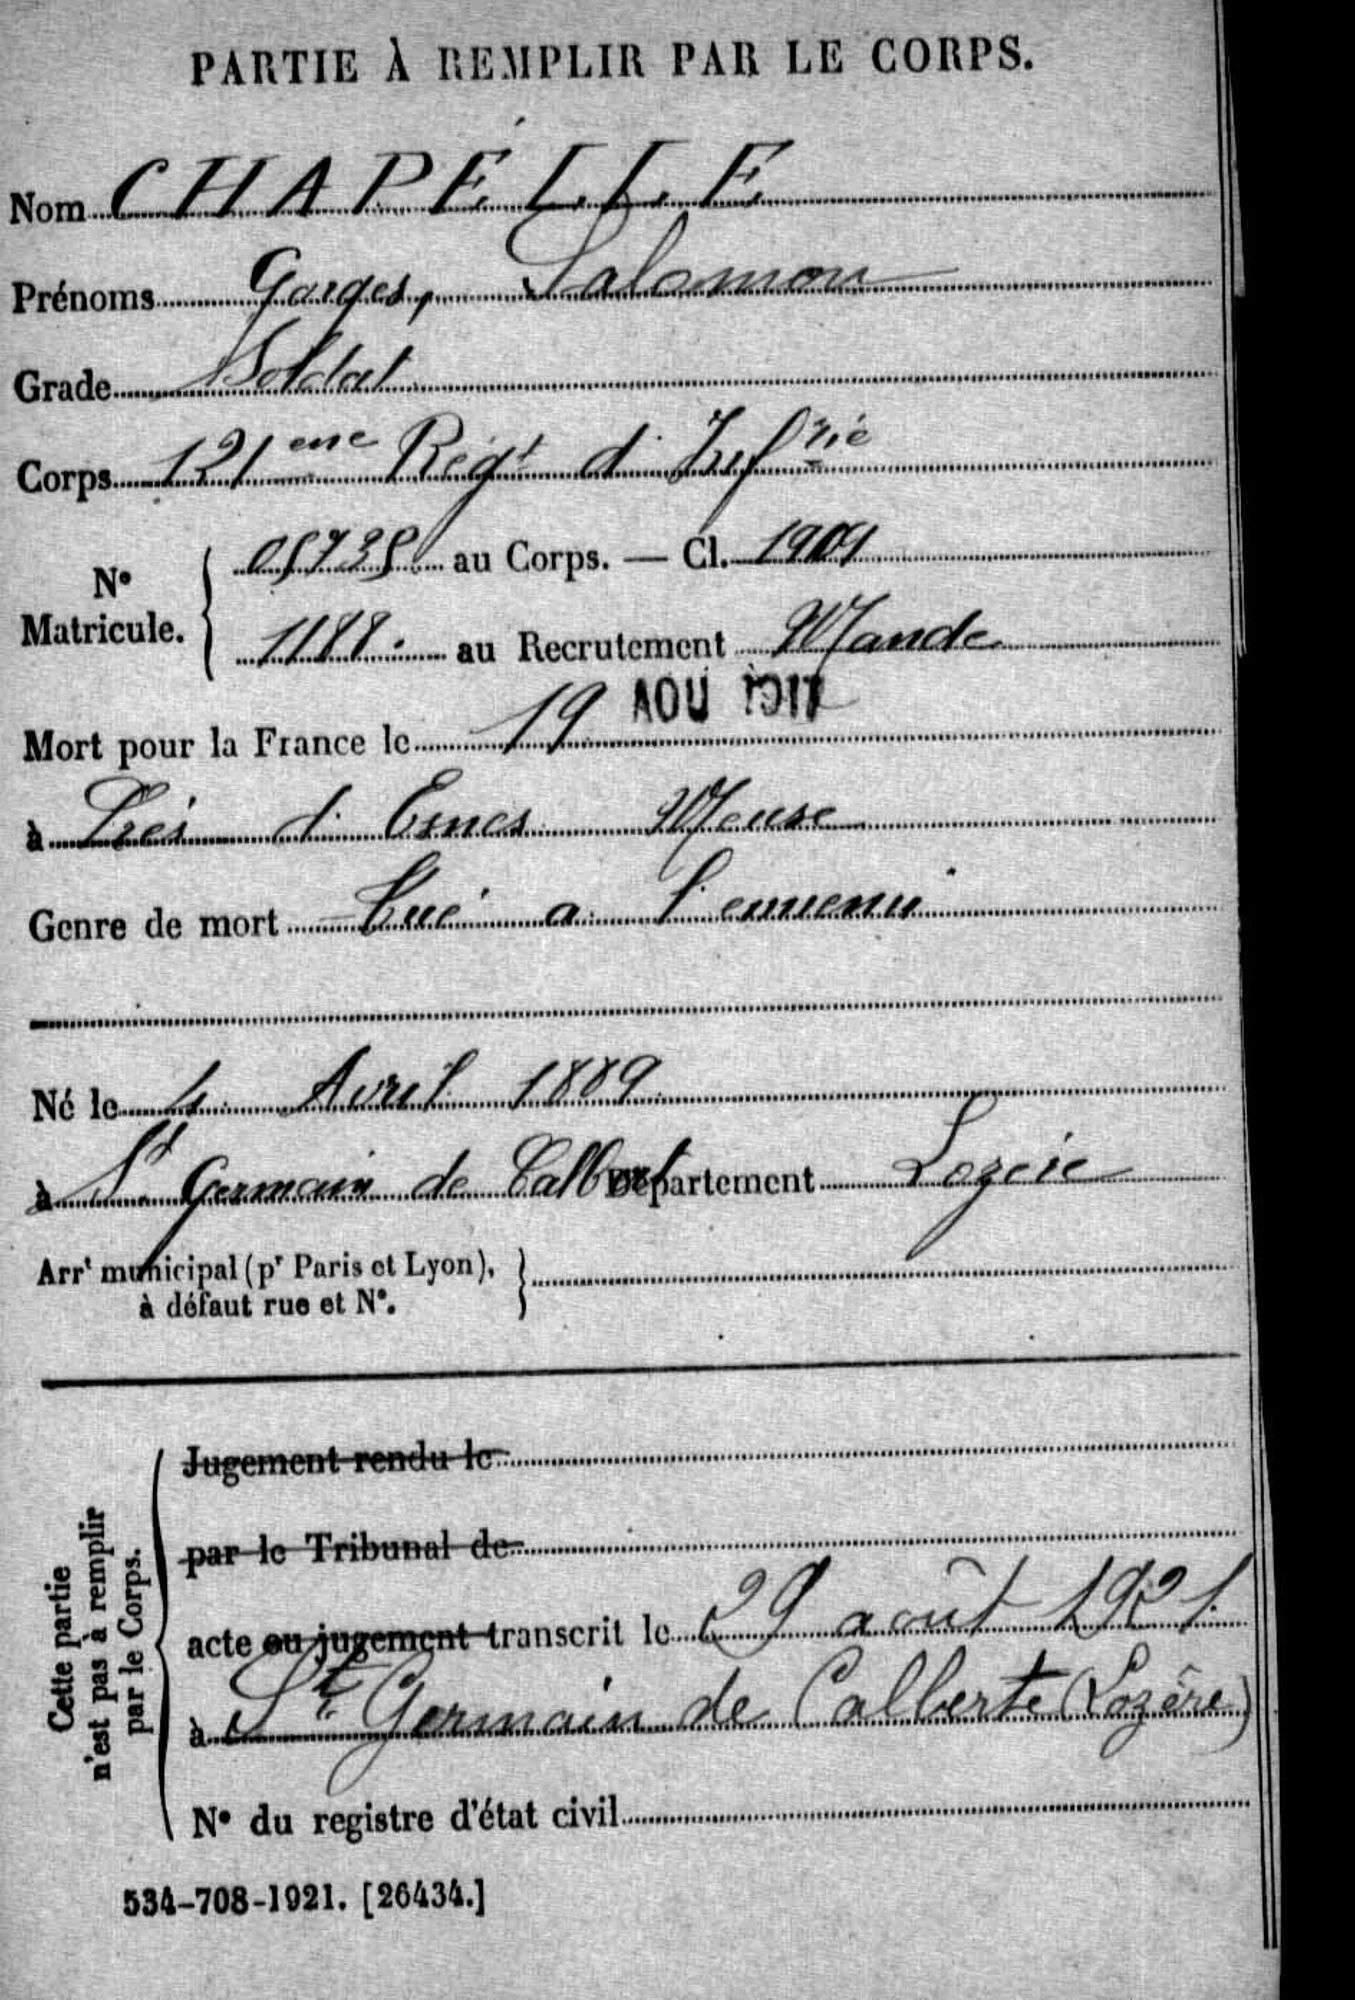 PARTIE À REMPLIR PAR LE CORPS.
Nom CHAPELLE
Prénoms Gorges, Salomon
Grade Soldat
Corps 121 eme Régt d'Infrie
N° Matricule. 05735 au Corps. — Cl. 1909
1188. au Recrutement Mande
Mort pour la France le 19 AOU 1917
à Prés d'Esnes Meuse
Genre de mort Tué a l'ennemi
Né le 4 Avril 1889
à St Germain de Calbert Département Lozère
Arrt municipal (pr Paris et Lyon),
à défaut rue et N°.
Cette partie
n'est pas à remplir
par le Corps.
Jugement rendu le
par le Tribunal de
acte ou jugement transcrit le 29 août 1921
à St Germain de Calberte (Lozère)
N° du registre d'état civil
534-708-1921. [26434.]